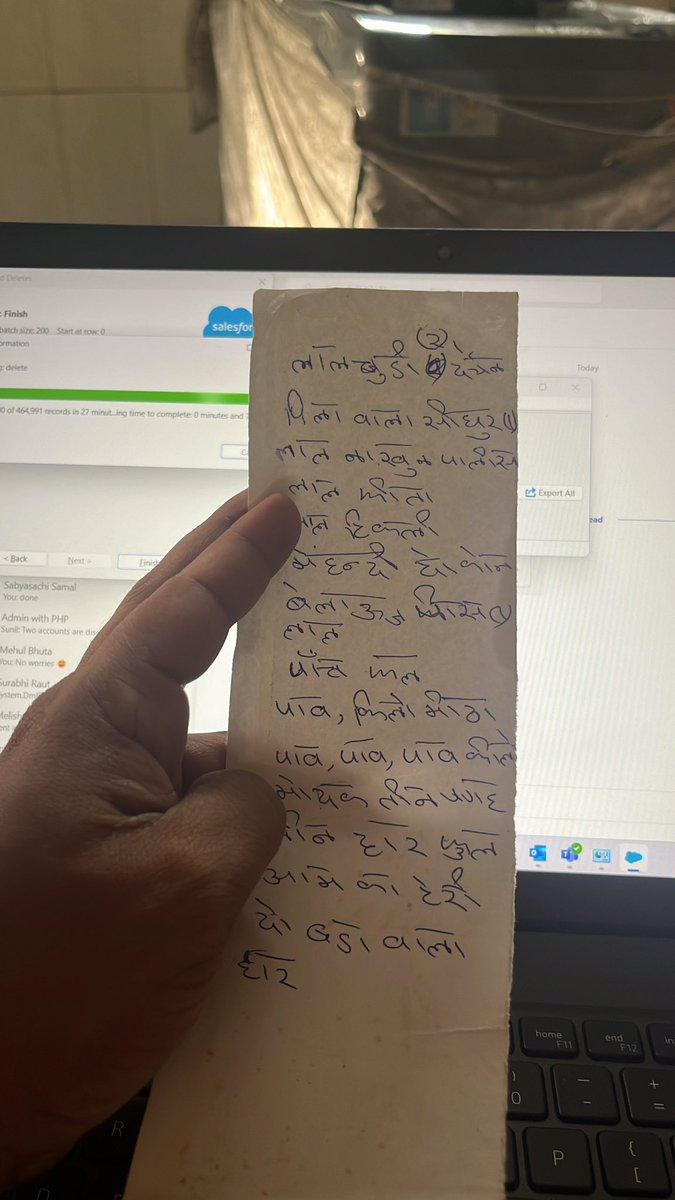 d Deletes
: Finish
batch size: 200 Start at row: 0
salesfor
ormation
g: delete
0 of 464,991 records in 27 minut...ing time to complete: 0 minutes and
Today
Export All
ead
< Back Next > Finish
Sabyasachi Samal
You: done
Admin with PHP
Sunil: Two accounts are dis
Mehul Bhuta
You: No worries
Surabhi Raut
ystem.Dm
Melish
(2)
लाल चुडी
पिला वाला सीधुर (1)
लाल नाखुन पालीस
लाल फीता
टिकली
मेहन्दी दो कोन
लाल
पाँच फल
पाव, किलो मीठा
पाव, पाव, पाव कीलो
मोदक तीन
तीन हार फुल
आम का
दो बडा वाला
हार
home
F11
end
F12
in
)
0
-
-
+
=
P
{
[
R
D